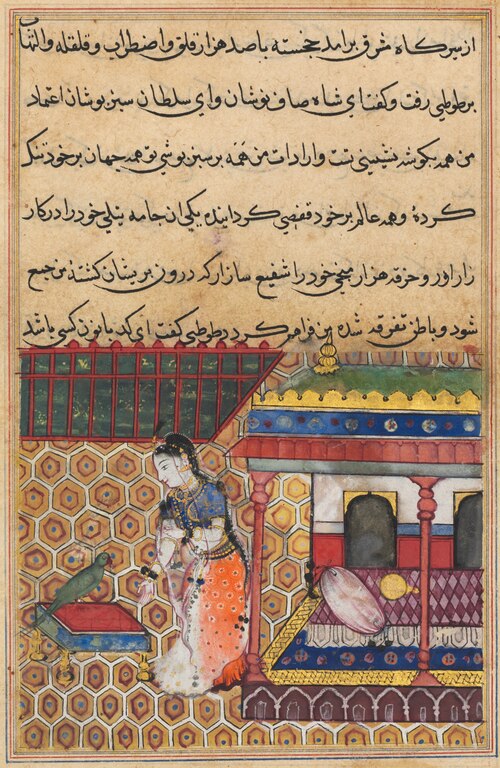 از سر کاه مشرق برامد خجسته با صد هزار قلق و اضطراب و قلقله و التهاب
بر طوطی رفت و کفت ای شاه صاف نوشان و ای سلطان سبز پوشان اعتماد
من همه بکوشه نشینی تست و ارادات من همه بر سبز پوشی تو همه جهان بر خود تنک
کرده و همه عالم بر خود قفصی کردانیده یکی ان جامه نیلی خود را در کار
زار اور و خرقه هزار میخی خود را شفیع ساز تا رکه درون پریشان کشتهٔ من جمع
شود و باطن تفرقه شده من فراهم کردد طوطی کفت ای کدبانو کسی باشد